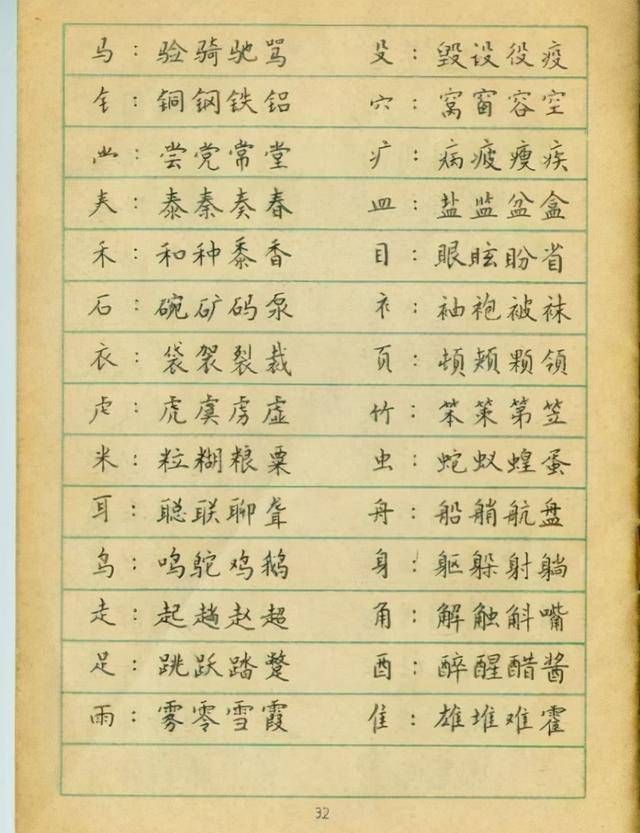 马：验骑驰骂 殳：毁设役疫
钅：铜钢铁铝 穴：窝窗容空
龸：尝党常堂 疒：病疲瘦疾
𡗗：泰秦奏春 皿：盐监盆盒
禾：和种黍香 目：眼眩盼省
石：碗矿码泵 衤：袖袍被袜
衣：袋袈裂裁 页：顿颊颗领
虍：虎虞虏虚 竹：笨策第笠
米：粒糊粮粟 虫：蛇蚁蝗蛋
耳：聪联聊聋 舟：船艄航盘
鸟：鸣鸵鸡鹅 身：躯躲射躺
走：起趟赵超 角：解触斛嘴
足：跳跃踏蹩 酉：醉醒醋酱
雨：雾零雪霞 隹：雄堆难霍
32